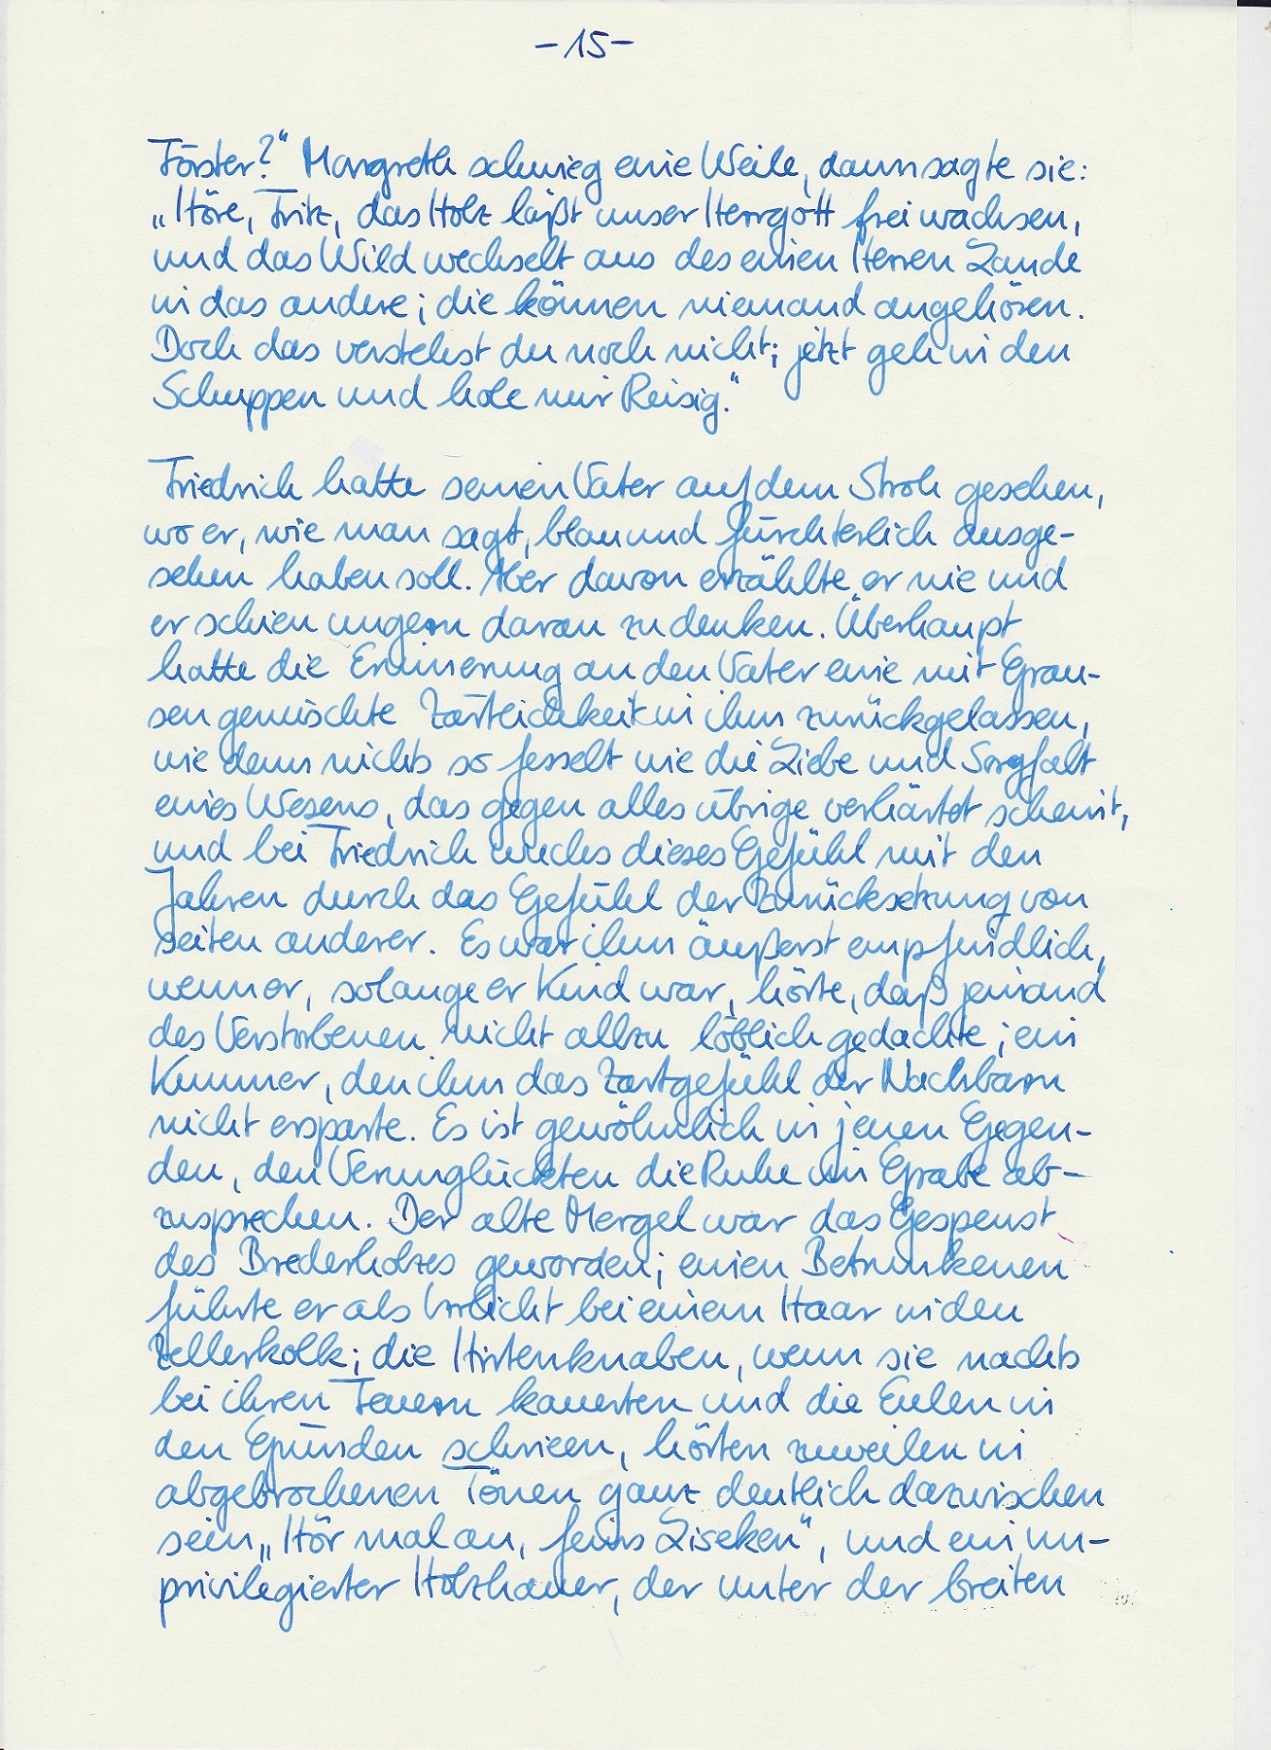 -15-
Förster?" Margreth schwieg eine Weile, dann sagte sie:
„Höre, Fritz, das Holz läßt unser Herrgott frei wachsen,
und das Wild wechselt aus des einen Herren Lande
in das andere; die können niemand angehören.
Doch das verstehst du noch nicht; jetzt geh in den
Schuppen und hole mir Reisig."
Friedrich hatte seinen Vater auf dem Stroh gesehen,
wo er, wie man sagt, blau und fürchterlich ausge-
sehen haben soll. Aber davon erzählte er nie und
er schien ungern daran zu denken. Überhaupt
hatte die Erinnerung an den Vater eine mit Grau-
sen gemischte Zärtlichkeit in ihm zurückgelassen,
wie denn nichts so fesselt wie die Liebe und Sorgfalt
eines Wesens, das gegen alles übrige verhärtet scheint,
und bei Friedrich wuchs dieses Gefühl mit den
Jahren durch das Gefühl der Zurücksetzung von
seiten anderer. Es war ihm äußerst empfindlich,
wenn er, solange er Kind war, hörte, daß jemand
des Verstorbenen nicht allzu löblich gedachte; ein
Kummer, den ihm das Zartgefühl der Nachbarn
nicht ersparte. Es ist gewöhnlich in jenen Gegen-
den, den Verunglückten die Ruhe im Grabe ab-
zusprechen. Der alte Mergel war das Gespenst
des Brederholzes geworden; einen Betrunkenen
führte er als Irrlicht bei einem Haar in den
Zellerkolk; die Hirtenknaben, wenn sie nachts
bei ihren Feuern kauerten und die Eulen in
den Gründen schrieen, hörten zuweilen in
abgebrochenen Tönen ganz deutlich dazwischen
sein „Hör mal an, feins Liseken", und ein un-
privilegierter Holzhauer, der unter der breiten